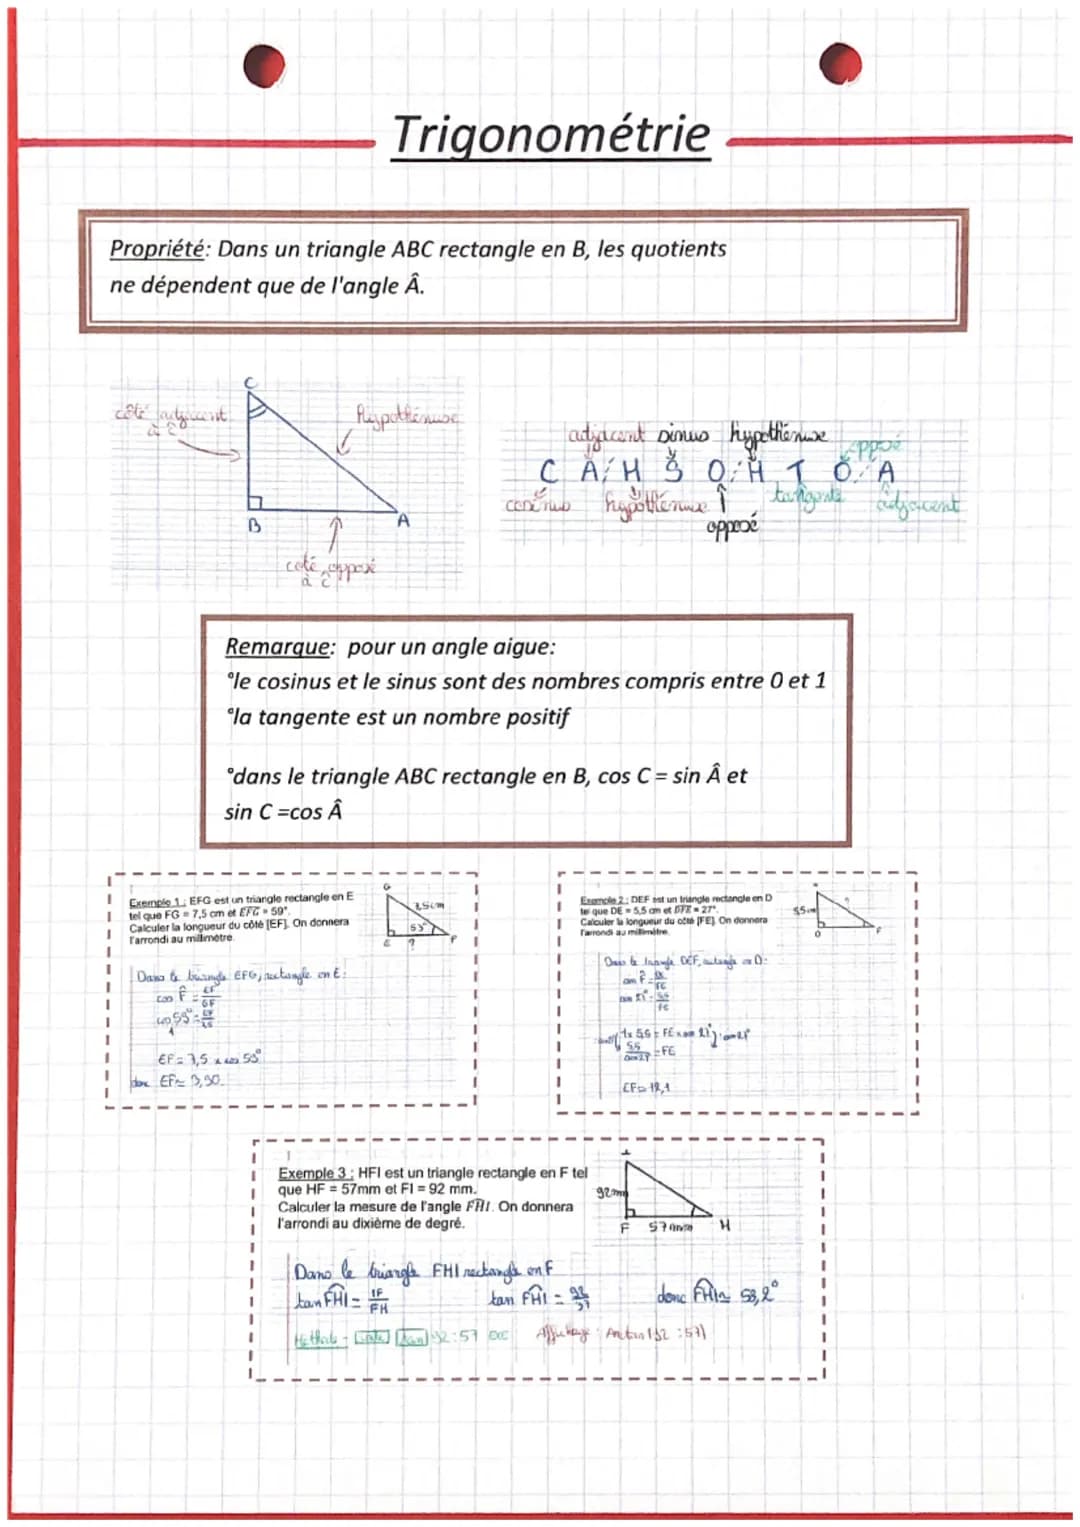 Trigonométrie
Propriété: Dans un triangle ABC rectangle en B, les quotients
ne dépendent que de l'angle Â.
C
côté adjacent
à Ĉ
Hypothénuse
B
A
coté opposé
à Ĉ
adjacent sinus hypothénuse opposé
C A/H S O/H T O/A
cosinus hypothénuse tangente adjacent
opposé
Remarque: pour un angle aigue:
°le cosinus et le sinus sont des nombres compris entre 0 et 1
°la tangente est un nombre positif
°dans le triangle ABC rectangle en B, cos C = sin Â et
sin C =cos Â
Exemple 1 : EFG est un triangle rectangle en E
tel que FG = 7,5 cm et EFG = 59°.
Calculer la longueur du côté [EF]. On donnera
l'arrondi au millimètre.
G
7,5cm
59°
E ? F
Dans le triangle EFG, rectangle en E:
cos F̂ = EF
GF
cos 59° = EF
7,5
EF = 7,5 x cos 59°
donc EF≈ 3,90
Exemple 2 : DEF est un triangle rectangle en D
tel que DE = 5,5 cm et DFE = 27°.
Calculer la longueur du côté [FE]. On donnera
l'arrondi au millimètre.
5,5cm
?
D
F
Dans le triangle DEF, rectangle en D:
sin F̂ = DE
FE
sin 27° = 5,5
FE
1x 5,5 = FE x sin 27
5,5 = FE
sin27
EF≈ 12,1
Exemple 3 : HFI est un triangle rectangle en F tel
que HF = 57mm et FI = 92 mm.
Calculer la mesure de l'angle FHI. On donnera
l'arrondi au dixième de degré.
I
92mm
F 57mm H
Dans le triangle FHI rectangle en F
tan FHI = IF
FH
tan FHI = 92
57
donc FHI≈ 58,2°
Méthode - tan 92:57 EXE
Affichage : Arctan(92 :57)